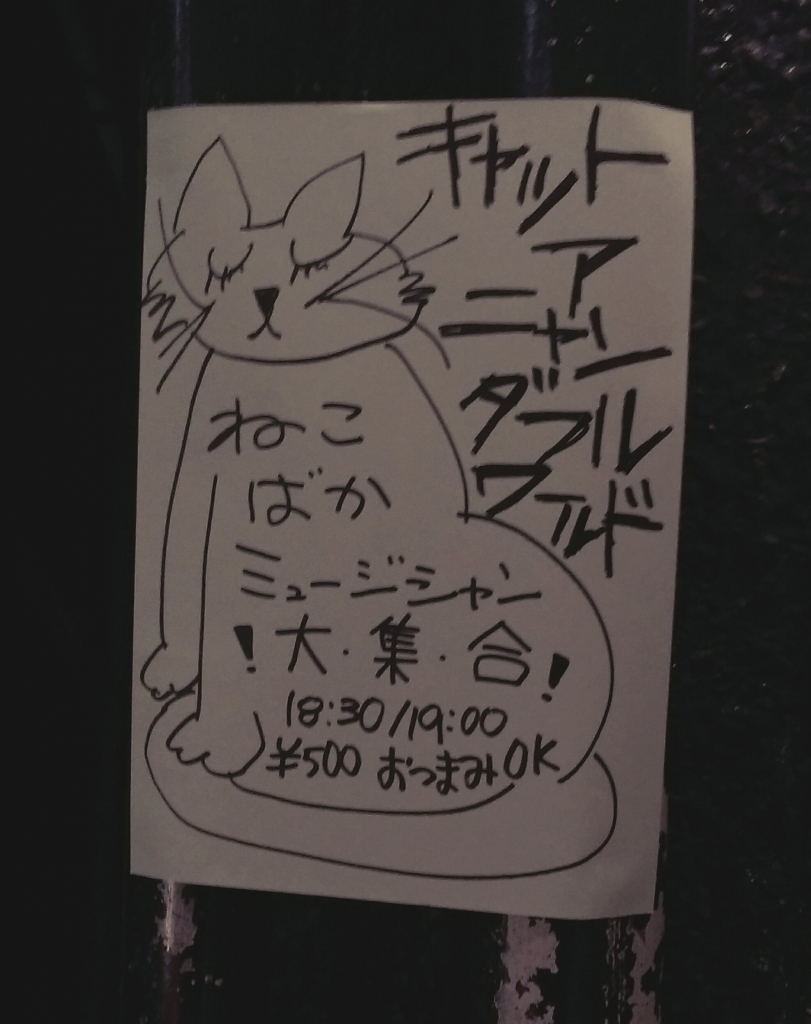 キャット
ア
ニャン
ダフル
ワールド
ねこ
ばか
ミュージシャン
！大・集・合！
18:30/19:00
¥500 おつまみOK